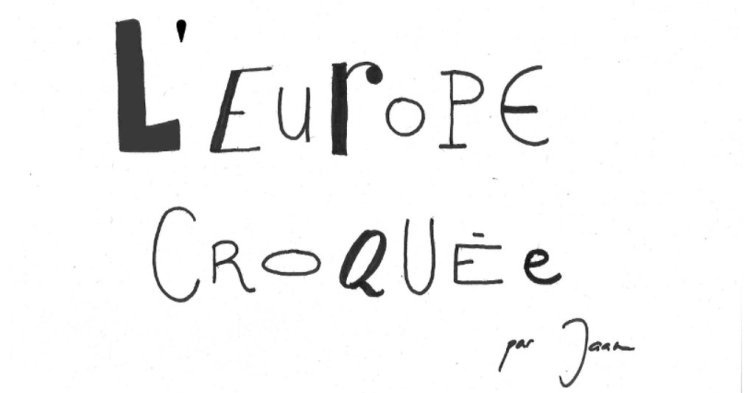 L'EUrOPE
CROQUÉe
par Jaan